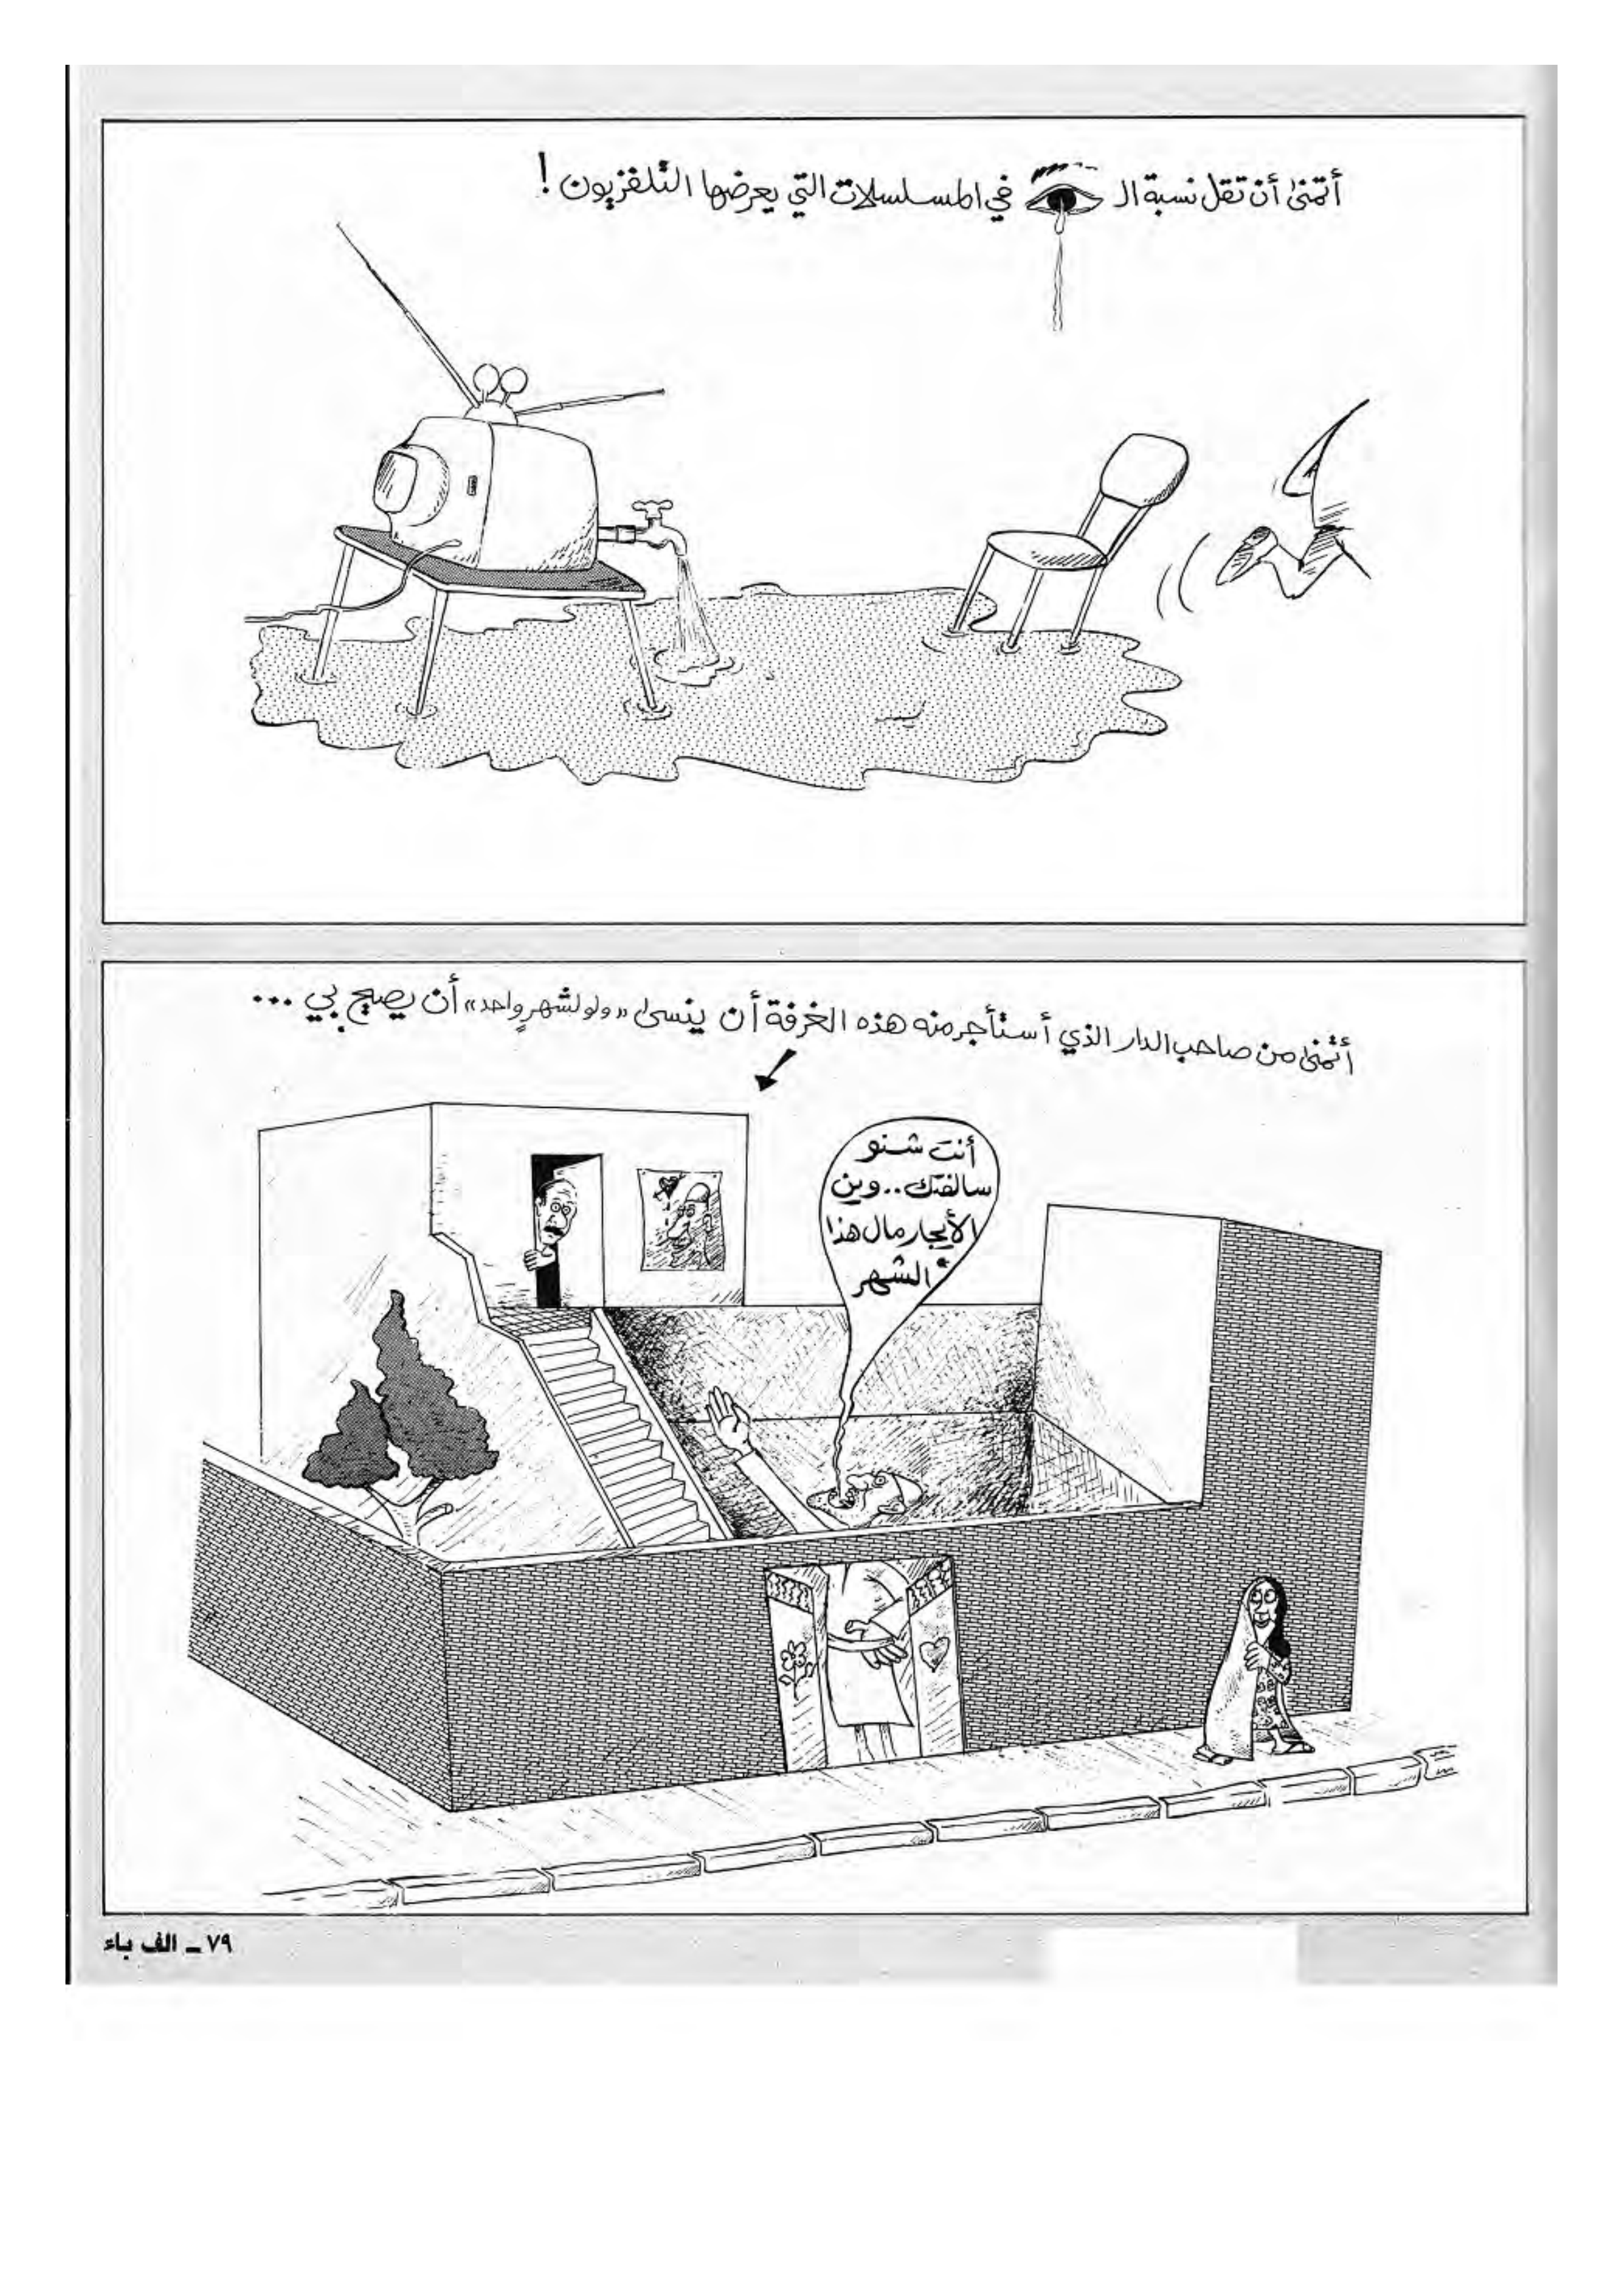 أتمنى أن تقل نسبة الـ في المسلسلات التي يعرضها التلفزيون !
أتمنى من صاحب الدار الذي أستأجر منه هذه الغرفة أن ينسى «ولو لشهر واحد» أن يصيح بي ...
أنت شنو
سالفتك.. وين
الأيجار مال هذا
الشهر
٧٩ ـ الف باء